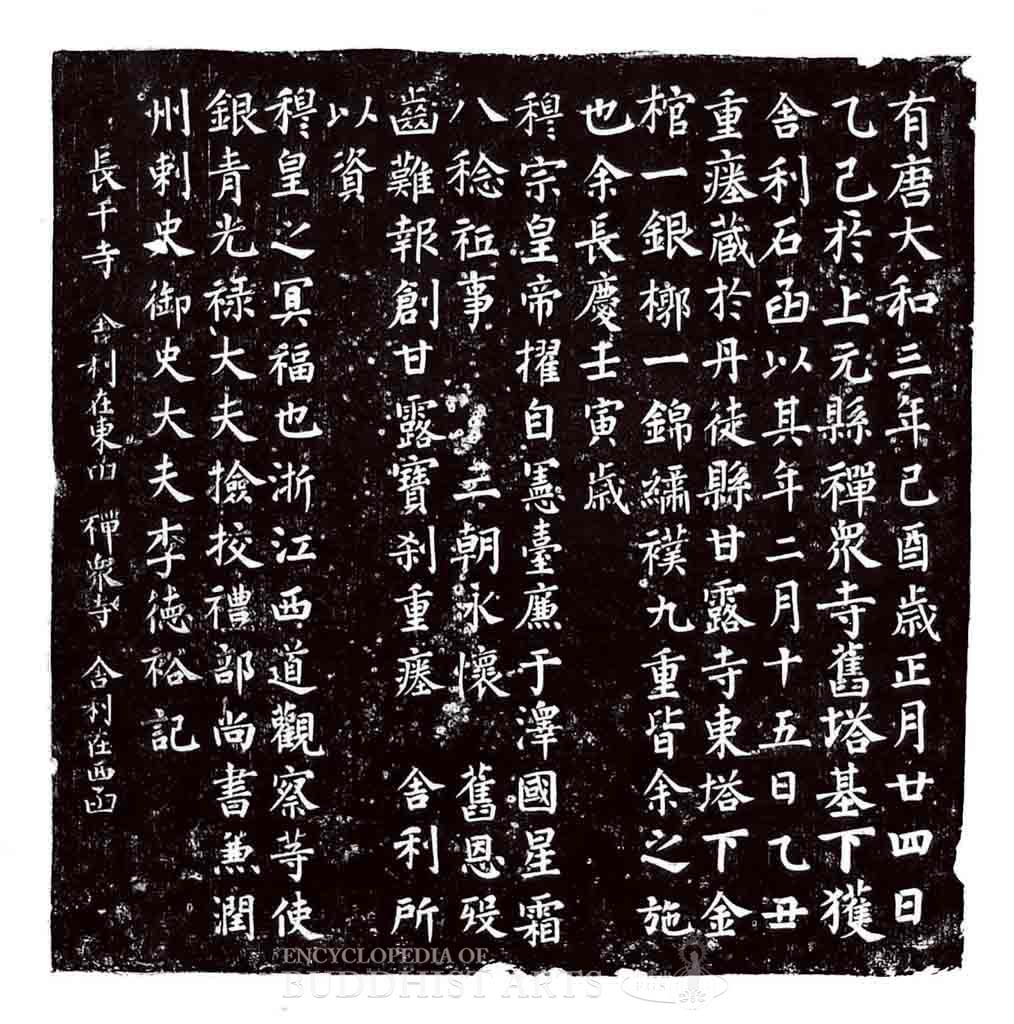 有唐大和三年己酉歲正月廿四日
乙己於上元縣禪衆寺舊塔基下獲
舍利石函以其年二月十五日乙丑
重瘞藏於丹徒縣甘露寺東塔下金
棺一銀槨一錦繡襆九重皆余之施
也余長慶壬寅歲
穆宗皇帝擢自憲臺廉于澤國星霜
八稔祗事 三朝永懷 舊恩歿
齒難報創甘露寶刹重瘞 舍利所
以資
穆皇之冥福也浙江西道觀察等使
銀青光祿大夫撿挍禮部尚書兼潤
州刺史御史大夫李德裕記
長干寺 舍利在東函 禪衆寺 舍利在西函
ENCYCLOPEDIA OF
BUDDHIST ARTS